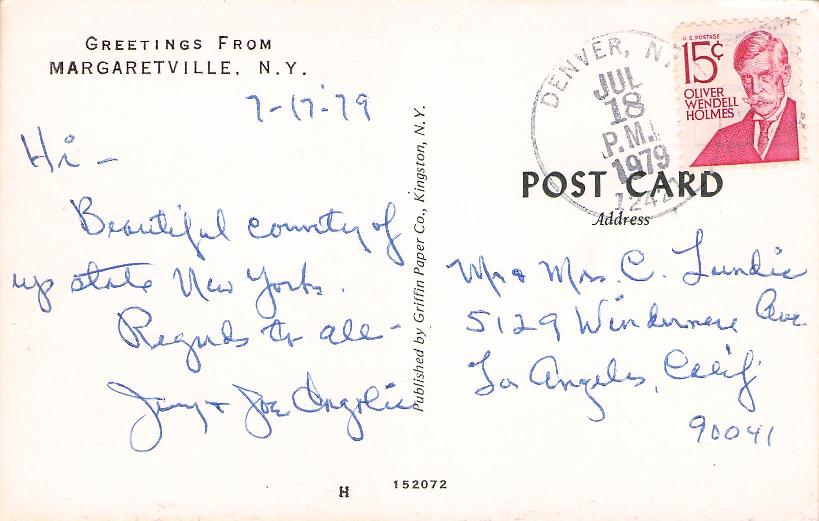 GREETINGS FROM
MARGARETVILLE, N.Y.
7-17-79
Hi -
Beautiful country of
up state New York.
Regards to all -
& Joe
Published by Griffin Paper Co., Kingston, N.Y.
H 152072
DENVER, N.Y.
JUL
18
P.M.
1979
U.S. POSTAGE
15¢
OLIVER
WENDELL
HOLMES
POST CARD
Address
Mr & Mrs. C. Lundie
5129 Windermere Ave.
Los Angeles, Calif
90041